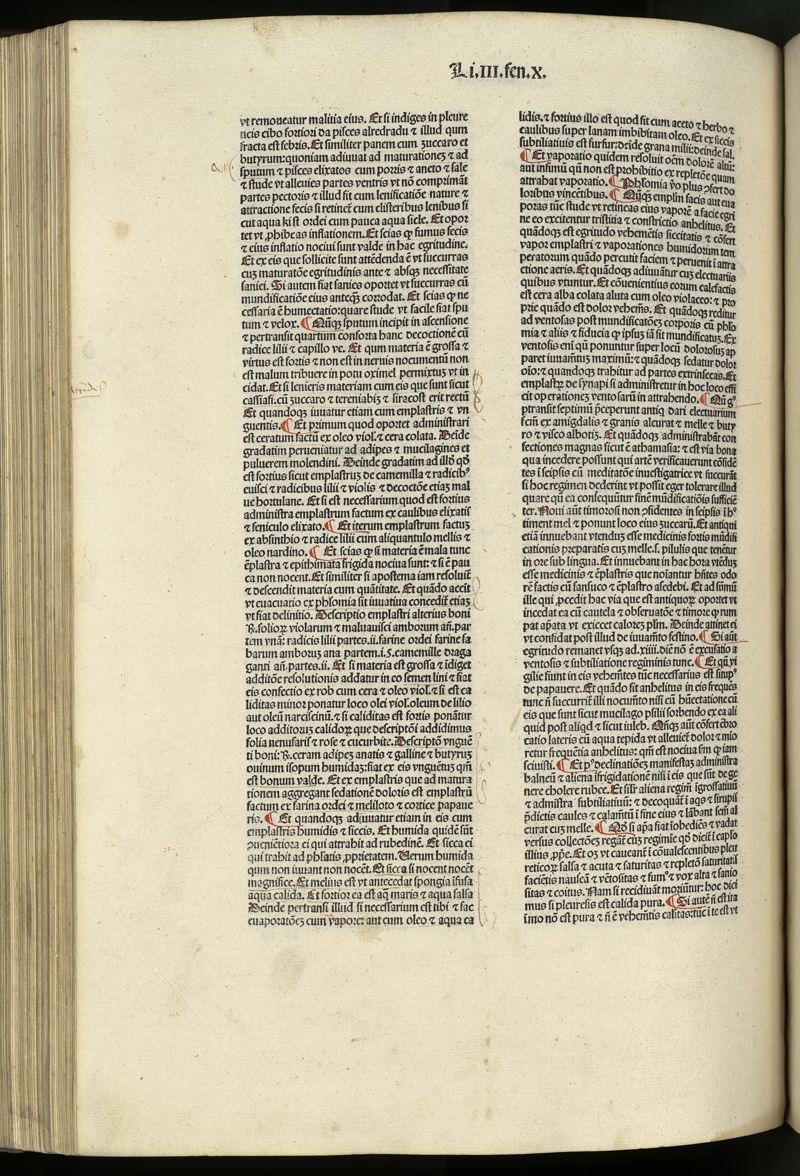 Li.III.fen.X.
vt remoueatur malitia eius. Et si indiges in pleure
ticis cibo fortiori da pisces alredradu ⁊ illud qum
fracta est febris. Et similiter panem cum zuccaro et
butyrum: quoniam adiuuat ad maturationeʒ ⁊ ad
sputum ⁊ pisces elixatos cum porris ⁊ aneto ⁊ sale
⁊ stude vt alleuies partes ventris vt nō comprimāt
partes pectoris ⁊ illud fit cum lenificatiōe nature ⁊
attractione fecis si retinet̄ cum clisteribus lenibus si
cut aqua kist ordei cum pauca aqua sicle. Et opor
tet vt ꝓhibeas inflationem. Et scias ꝙ fumus fecis
⁊ eius inflatio nociui sunt valde in hac egritudine.
Et ex eis que sollicite sunt attēdenda ē vt succurras
cuʒ maturatōe egritudinis ante ⁊ absqʒ necessitate
saniei. Si autem fiat sanies oportet vt succurras cū
mundificatiōe eius anteqʒ corrodat. Et scias ꝙ ne
cessaria ē humectatio: quare stude vt facile fiat spu
tum ⁊ velox. ¶ Nūqʒ sputum incipit in ascensione
⁊ pertransit quartum conforta hanc decoctionē cū
radice lilii ⁊ capillo ve. Et qum materia ē grossa ⁊
virtus est fortis ⁊ non est in neruis nocumentū non
est malum tribuere in potu oximel permixtuʒ vt in
cidat. Et si lenieris materiam cum eis que sunt sicut
cassiafi. cū zuccaro ⁊ tereniabiʒ ⁊ siracost erit rectū
Et quandoqʒ iuuatur etiam cum emplastris ⁊ vn
guentis. ¶ Et primum quod oportet administrari
est ceratum factū ex oleo viol. ⁊ cera colata. Deide
gradatim perueniatur ad adipes ⁊ mucilagines et
puluerem molendini. Deinde gradatim ad illd qd
est fortius sicut emplastruʒ de camemilla ⁊ radicibꝰ
euisci ⁊ radicibus lilii ⁊ violis ⁊ decoctōe etiaʒ mal
ue hortulane. Et si est necessarium quod est fortius
administra emplastrum factum ex caulibus elixatis
⁊ feniculo elixato. ¶ Et iterum emplastrum factuʒ
ex absinthio ⁊ radice lilii cum aliquantulo mellis ⁊
oleo nardino. ¶ Et scias ꝙ si materia ē mala tunc
ēplastra ⁊ epithimata frigida nociua sunt: ⁊ si ē pau
ca non nocent. Et similiter si apostema iam resoluit̄
⁊ descendit materia cum quātitate. Et quādo accit̄
vt euacuatio ex phlsomia sit iuuatiua concedit̄ etiaʒ
vt fiat delinitio. Descriptio emplastri alterius boni
folioꝝ violarum ⁊ maluauisci amborum an̄. par
tem vnā: radicis lilii partes. ii. farine ordei farine fa
barum amborum ana partem. i. s. camemille draga
ganti an̄. partes. ii. Et si materia est grossa ⁊ īdiget
additōe resolutionis addatur in eo semen lini ⁊ fiat
eis confectio ex rob cum cera ⁊ oleo viol. ⁊ si est ca
liditas minor ponatur loco olei viol. oleum de lilio
aut oleū narciscinū. ⁊ si caliditas est fortis ponātur
loco additoruʒ calidoꝝ que descriptōi addidimus
folia nenufaris ⁊ rose ⁊ cucurbite. Descriptō vnguē
ti boni: ceram adipeʒ anatis ⁊ galline ⁊ butyruʒ
ouinum isopum humidaʒ: fiat ex eis vnguētuʒ qm̄
est bonum valde. Et ex emplastris que ad matura
tionem aggregant sedationē doloris est emplastrū
factum ex farina ordei ⁊ meliloto ⁊ cortice papaue
ris. ¶ Et quandoqʒ adiuuatur etiam in eis cum
emplastris humidis ⁊ siccis. Et humida quidē sūt
ꝯuenietiora ei qui attrahit ad rubedinē. Et sicca ei
qui trahit ad phlsatis ꝓprietatem. Uerum humida
qum non iuuant non nocēt. Et sicca si nocent nocēt
magnifice. Et melius est vt antecedat spongia īfusa
aqua calida. Et fortior ea est aq̄ maris ⁊ aqua salsa
Deinde pertransi illud si necessarium est tibi ⁊ fac
euaporatōeʒ cum vapore: aut cum oleo ⁊ aqua ca
lidis. ⁊ fortius illo est quod fit cum aceto ⁊ herbo ⁊
caulibus super lanam imbibitam oleo. Et ex siccis
subtiliatiuis est furfur: deide grana milii: deinde sal.
¶ Et vaporatio quidem resoluit oēm dolorē altū:
aut infimū qū non est prohibitio ex repletōe quam
attrahat vaporatio. ¶ Phlsomia vo plus ꝯfert do
loribus vincētibus. ¶ Nūqʒ emplm facis aut eua
poras tūc stude vt retineas eius vaporē a facie egri
ne eo excitentur tristitia ⁊ constrictio anhelitus. Et
quādoqʒ est egritudo vehemētis siccitatis ⁊ cōfert
vapor emplastri ⁊ vaporationes humidorum tem
peratorum quādo percutit faciem ⁊ peruenit ī attra
ctione aeris. Et quādoqʒ adiuuātur cuʒ electuariis
quibus vtuntur. Et cōuenientius eorum calefactis
est cera alba colata aluta cum oleo violaceo: ⁊ pro
prie quādo est dolor vehemēs. Et quādoqʒ reditur
ad ventosas post mundificatōeʒ corporis cū phlso
mia ⁊ aliis ⁊ fiducia ꝙ ipsuʒ iā sit mundificatuʒ. Ex
ventosis eni qū ponuntur super locū dolorosuʒ ap
paret iuuamētuʒ maximū: ⁊ quādoqʒ sedatur dolor
oīo: ⁊ quandoqʒ trahitur ad partes extrinsecas. Et
emplastrʒ de synapi si administretur in hoc loco effi
cit operationeʒ ventosarū in attrahendo. ¶ Nū gͦ
ꝑtransit septimū ꝑceperunt antiq̄ dari electuarium
fcm̄ ex amigdalis ⁊ granis aleurat ⁊ melle ⁊ buty
ro ⁊ visco albotiʒ. Et quādoqʒ administrabāt con
fectiones magnas sicut ē athamasia: ⁊ est via bona
qua incedere possunt qui artē verificauerunt cōfidē
tes ī seipsis cū meditatōe īuestigatrice vt succurāt
si hoc regimen dederint vt possit eger tolerare illud
quare qū ea consequūtur finē mūdificatiōis sufficiē
ter. Noui aūt timorosi non ꝯfidentes in seipsis ī hͦ
timent mel ⁊ ponunt loco eius zuccarū. Et antiqui
etiā innuebant vtenduʒ esse medicinis fortis mūdifi
cationis preparatis cuʒ melle. s. pilulis que tenētur
in ore sub lingua. Et innuebant in hac hora vtēduʒ
esse medicinis ⁊ ēplastris que noīantur hn̄tes odo
rē factis cū sansuco ⁊ ēplastro asedebi. Et ad sūmū
ille qui ꝓcedit hac via que est antiquoꝝ oportet vt
incedat ea cū cautela ⁊ obseruatōe ⁊ timore ꝙ rum
pat apata vt exiccet caloreʒ plm̄. Deinde attinet ei
vt confidat post illud de iuuamēto festino. ¶ Si aūt
egritudo remanet vsqʒ ad. xiiii. diē nō ē excusatio a
ventosis ⁊ subtiliatione regiminis tunc. ¶ Et qū vi
gilie fiunt in eis vehemētes tūc necessarius est sirupꝰ
de papauere. Et quādo fit anhelitus in eis frequēs
tunc n̄ succurrit̄ illi nocumēto nisi cū hūectatione cū
eis que sunt sicut mucilago psilii sorbendo ex ea ali
quid post aliqd ⁊ sicut iuleb. Nūqʒ aūt cōfert ebro
catio lateris cū aqua tepida vt alleuiet̄ dolor ⁊ mio
retur frequētia anhelitus: qm̄ est nociua fm ꝙ iam
sciuisti. ¶ Et pꝰ declinatiōeʒ manifestaʒ administra
balneū ⁊ aliena īfrigidationē nisi ī eis que sūt de ge
nere cholere rubee. Et silr̄ aliena regim̄ īgrossatiuū
⁊ admīstra subtiliatiuū: ⁊ decoquāt̄ ī aqs ⁊ sirupis
ꝓdictis caules ⁊ calamētū ī fine eius ⁊ lābant sem̄ al
curat cuʒ melle. ¶ Qd si apa fiat īobediēs ⁊ vadat
versus collectōeʒ regat̄ cuʒ regimīe qd dicit̄ ī capło
illius ꝓpe. Et oʒ vt caueant ī cōualescentibus pleu
reticoꝝ salsa ⁊ acuta ⁊ saturitas ⁊ repletō saturitati
faciētis nauseā ⁊ vētositas ⁊ fumꝰ ⁊ vox alta ⁊ sanio
sitas ⁊ coitus. Nam si recidiuāt moriūtur: hoc dici
mus si pleuresis est calida pura. ¶ Si autē n̄ est ita
imo nō est pura ⁊ n̄ ē vehemētis calitas: tūc ī te est vt